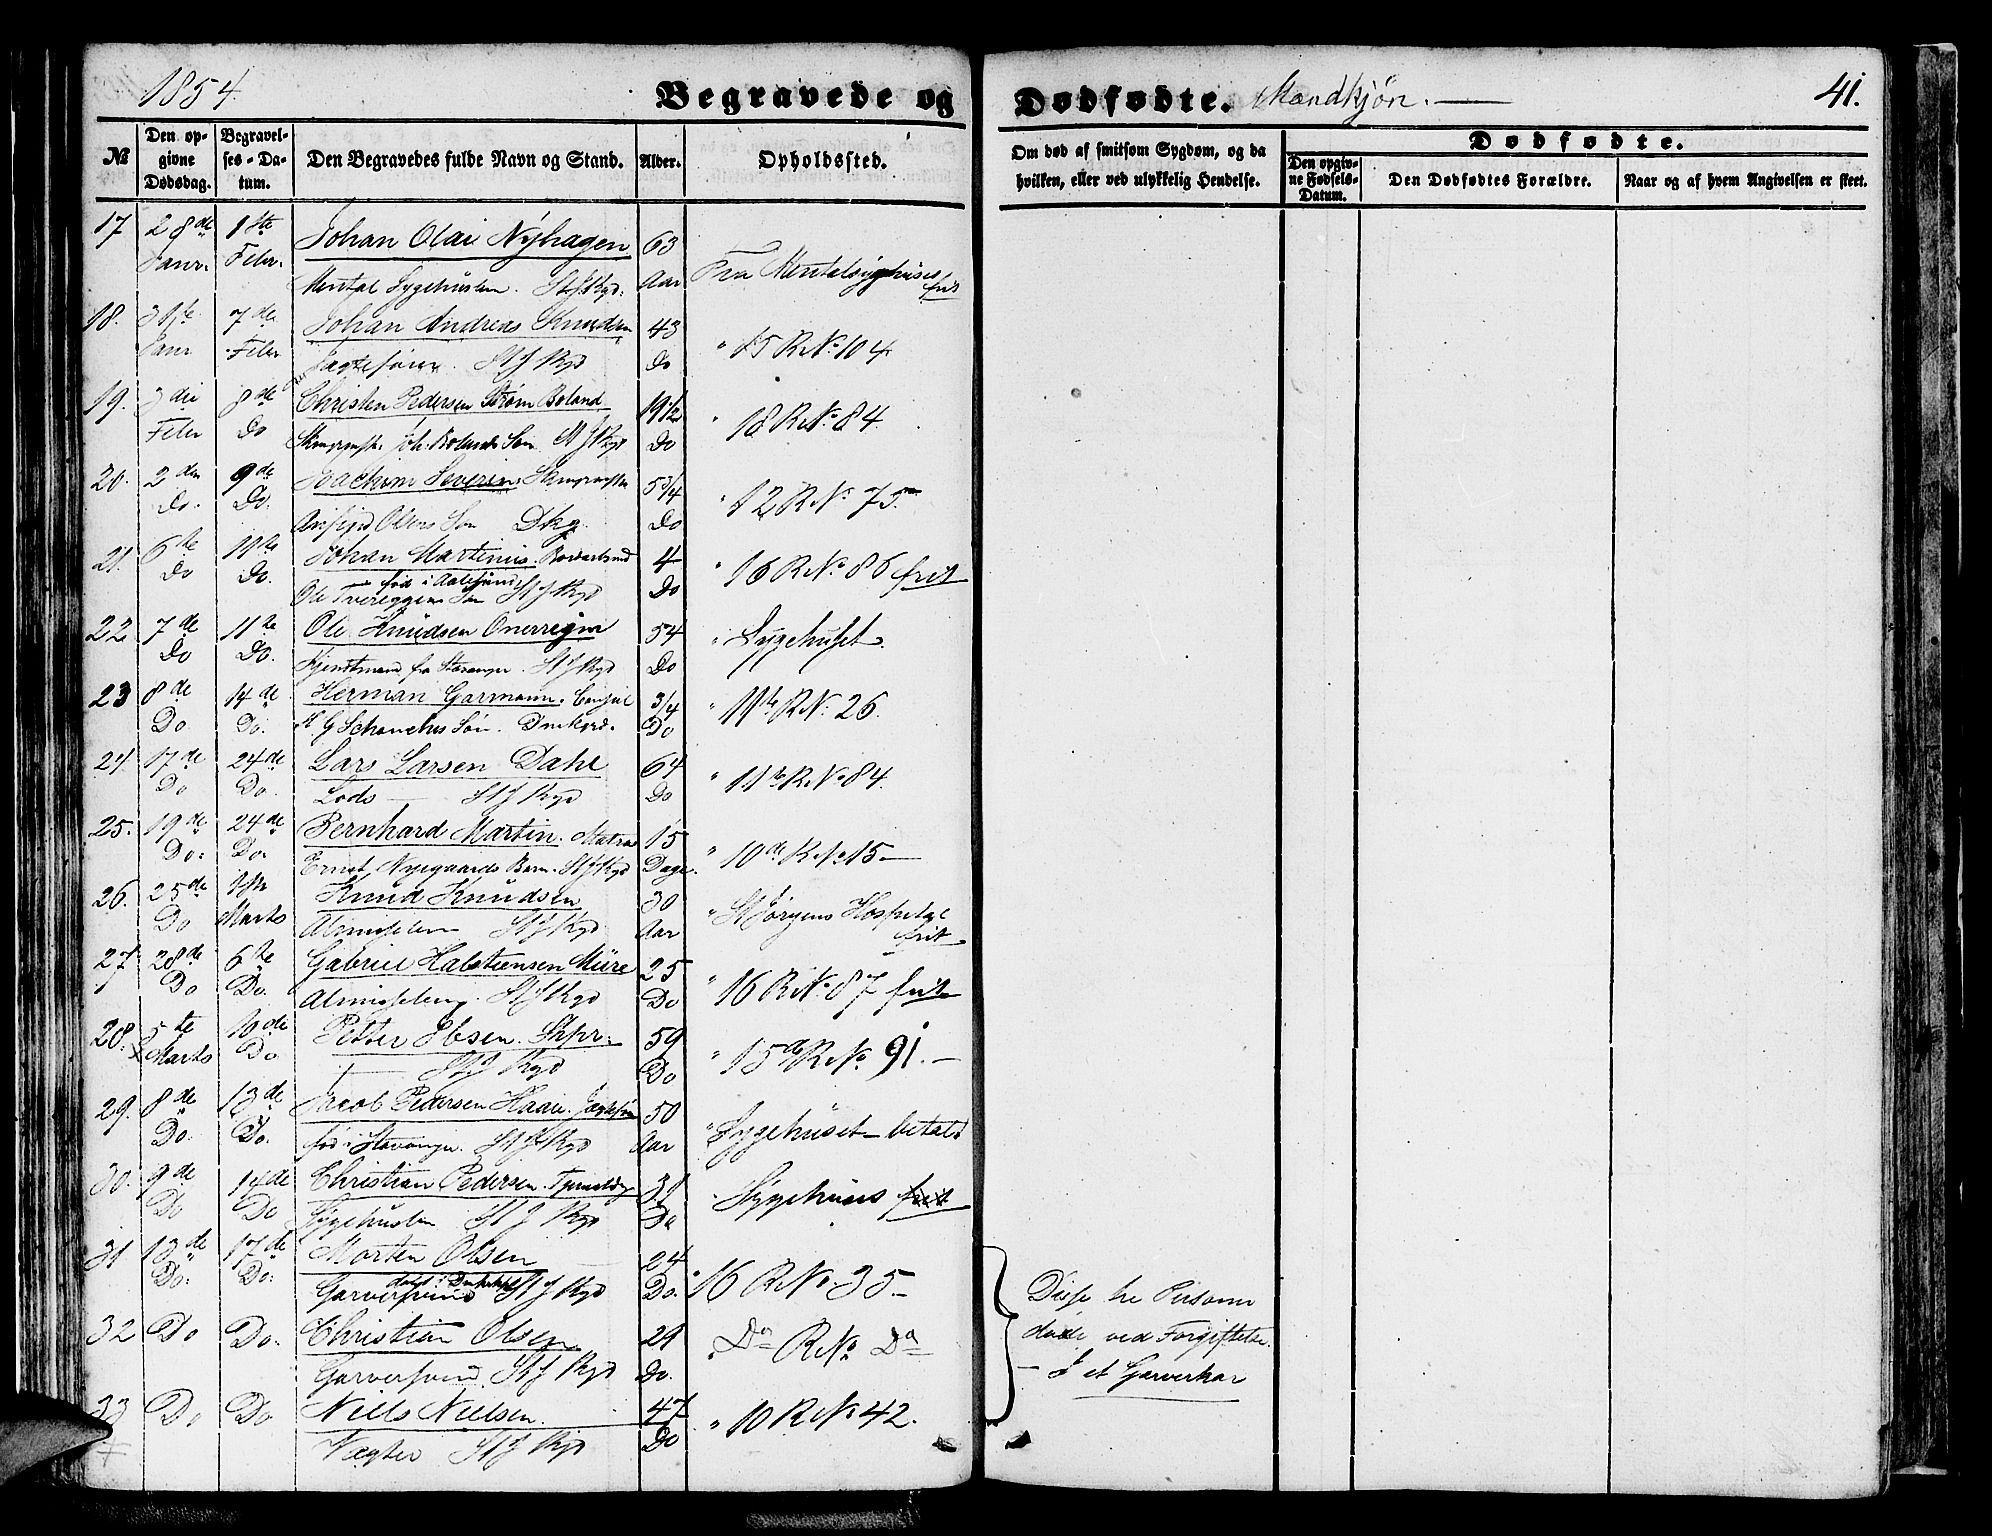 1854. Begravede og Dødfødte. Mandkjøn. 41.
№ Den opgivne Dødsdag. Begravelses-Datum. Den Begravedes fulde Navn og Stand. Alder. Opholdssted. Om død af smitsom Sygdom, og da hvilken, eller ved ulykkelig Hendelse. Dødfødte. Den opgivne Fødsels-Datum. Den Dødfødtes Forældre. Naar og af hvem Angivelsen er skeet.
17 28de 1ste Johan Olai Nyhagen 63
Janr. Febr. Mental Sygehuslem St J Kgd. Aar Fra Mentalsygehuset frit
18. 31te 7de Johan Andreas Knudsen 43
Janr Febr Jagtefører. St J Kgd Do " 15 R No 104
19. 3die 8de Christen Pedersen Strøm Boland 19 1/2 " 18 R No 84
Febr Do Joh. Bolands Søn St J Kgd Do
20. 2den 9de Joachim Severin. 5 3/4 " 12 R No 75
Do. Do. Olsens Søn Dkg. Do
21. 6te 11te Johan Martinus. 4 " 16 R No 86 frit
Do Do. født i Aalesund
Ole Søn St J Kgd Do
22 7de 11te Ole Knudsen 54 " Sygehuset.
Do Do. fra Stavanger. St J Kgd Do
23 8de 14de Herman Garmann. Consul 3/4 " 19de R No 26.
Do Do. Søn. Domkgd. Do
24 17de 24de Lars Larsen Dahl 64 " 11te R No 84.
Do Do. Lods St J Kgd Do
25. 19de 24de Bernhard Martin. Matros 15 " 10de R No 15 —
Do. Do. Ernst Nygaards Barn. St J Kgd Dage.
26. 25de Knud Knudsen 30 " St Jørgens Hospital
Do Marts Almisselem St J Kgd Aar frit
27. 28de 6te Gabriel Halstensen Mure 25 " 16 R No 87 frit
Do Do. Almisselem. St J Kgd Do
28. 5te 10de Petter Ibsen. Skpr. 59 " 15de R No 91. —
Marts Do St J Kgd Do
29. 8de 13de Jacob Pedersen Haaer. Jagtefører 50 " Sygehuset betalt
Do. Do. fød i Stavanger. St J Kgd Aar
30. 9de 14de Christian Pedersen. Sygehuset frit
Do Do Sygehuslem St J Kgd Do
31 13de 17de Morten Olsen 24 " 16 R No 35 —
Do. Do. Garversvend St J Kgd Do. Disse tre Personer
32 Do Do. Christian Olsen 29 " Do R No Do døde ved Forgiftelse
Garversvend. St J Kgd Do. — I et Garverkar
33 Do Do Niels Nielsen. 47 " 10 R No 42.
Vægter St J Kgd Do